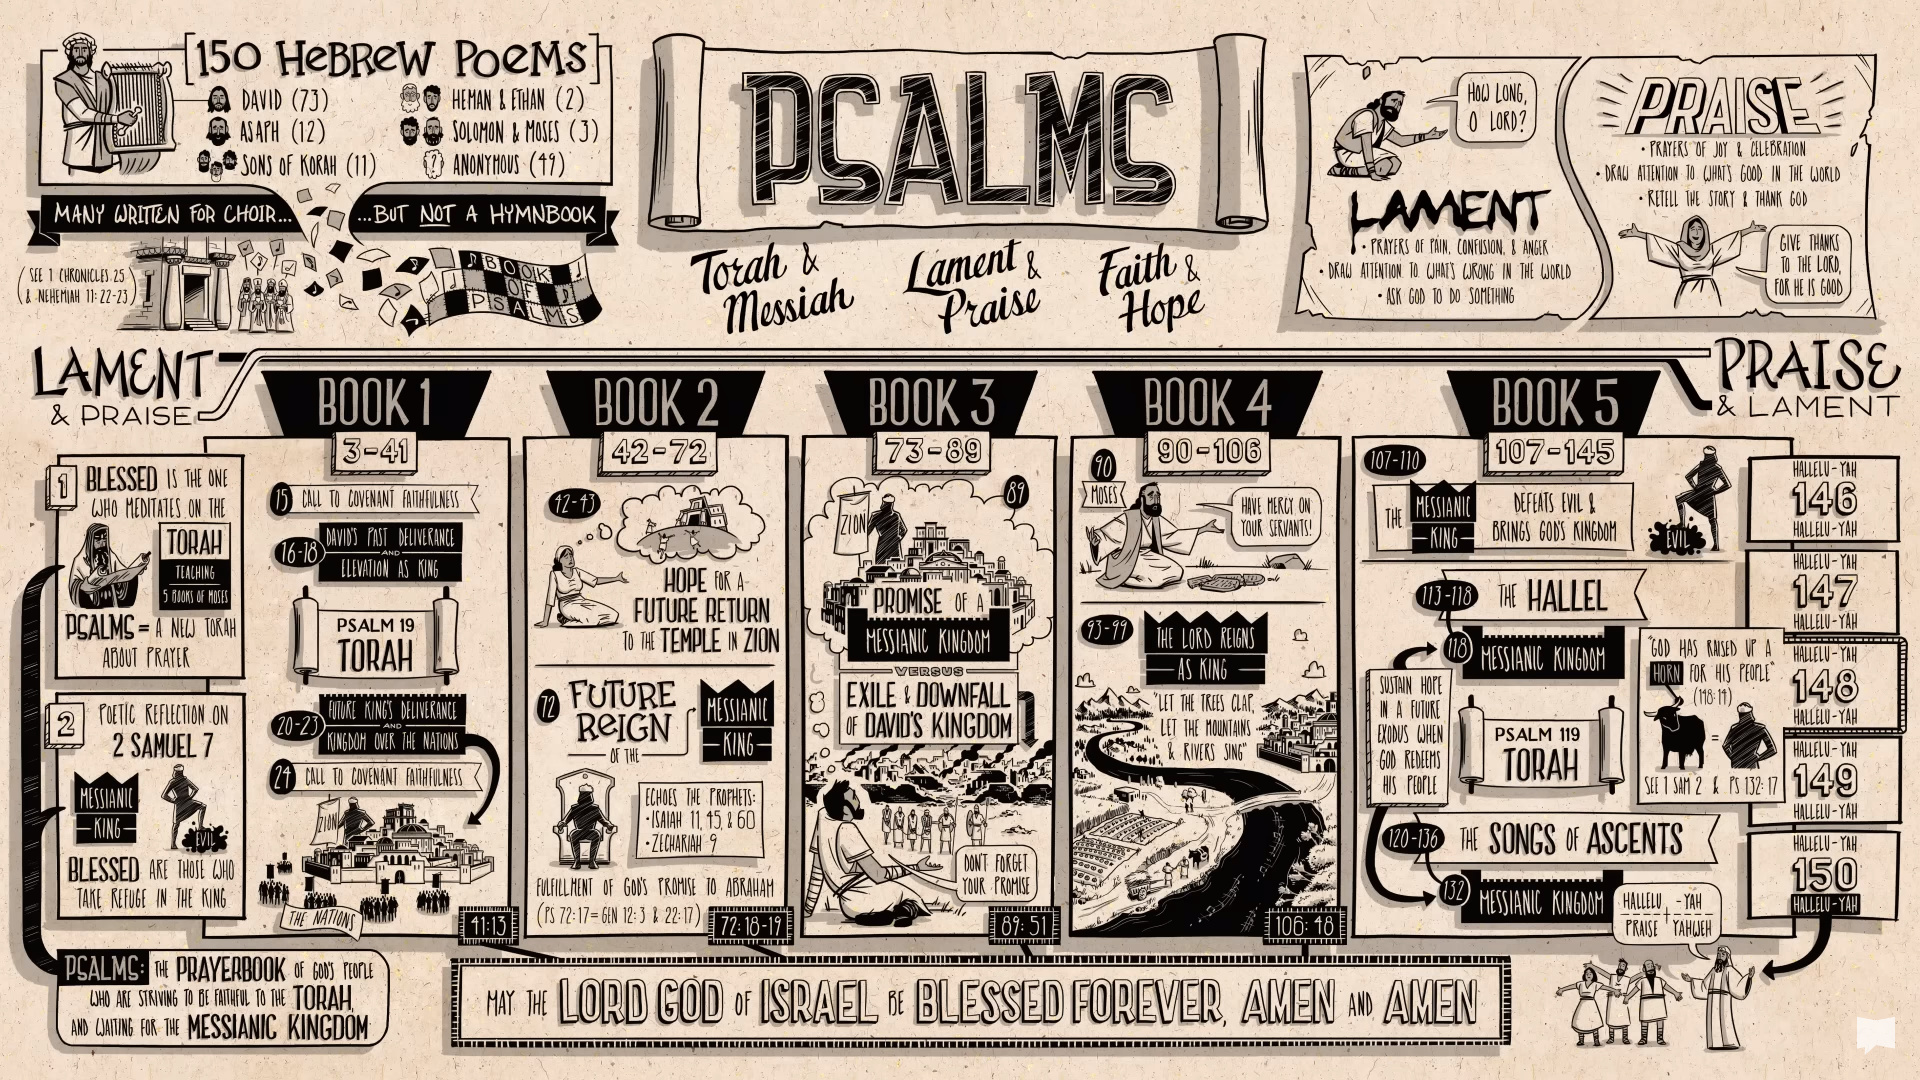 150 HEBREW POEMS
DAVID (73)
ASAPH (12)
SONS OF KORAH (11)
HEMAN & ETHAN (2)
SOLOMON & MOSES (3)
ANONYMOUS (49)
MANY WRITTEN FOR CHOIR...
...BUT NOT A HYMNBOOK
(SEE 1 CHRONICLES 25
& NEHEMIAH 11: 22-23)
BOOK
OF
PSALMS
PSALMS
Torah &
Messiah
Lament &
Praise
Faith &
Hope
HOW LONG,
O LORD?
LAMENT
• PRAYERS OF PAIN, CONFUSION, & ANGER
• DRAW ATTENTION TO WHAT'S WRONG IN THE WORLD
• ASK GOD TO DO SOMETHING
PRAISE
• PRAYERS OF JOY & CELEBRATION
• DRAW ATTENTION TO WHAT'S GOOD IN THE WORLD
• RETELL THE STORY & THANK GOD
GIVE THANKS
TO THE LORD,
FOR HE IS GOOD
LAMENT
& PRAISE
PRAISE
& LAMENT
1
BLESSED IS THE ONE
WHO MEDITATES ON THE
TORAH
TEACHING
5 BOOKS OF MOSES
PSALMS = A NEW TORAH
ABOUT PRAYER
2
POETIC REFLECTION ON
2 SAMUEL 7
MESSIANIC
KING
EVIL
BLESSED ARE THOSE WHO
TAKE REFUGE IN THE KING
PSALMS: THE PRAYERBOOK OF GOD'S PEOPLE
WHO ARE STRIVING TO BE FAITHFUL TO THE TORAH,
AND WAITING FOR THE MESSIANIC KINGDOM
BOOK 1
3-41
15 CALL TO COVENANT FAITHFULNESS
16-18
DAVID'S PAST DELIVERANCE
AND
ELEVATION AS KING
PSALM 19
TORAH
20-23
FUTURE KING'S DELIVERANCE
AND
KINGDOM OVER THE NATIONS
24 CALL TO COVENANT FAITHFULNESS
ZION
THE NATIONS
41:13
BOOK 2
42-72
42-43
HOPE FOR A
FUTURE RETURN
TO THE TEMPLE IN ZION
72
FUTURE
REIGN
OF THE
MESSIANIC
KING
ECHOES THE PROPHETS:
• ISAIAH 11, 45, & 60
• ZECHARIAH 9
FULFILLMENT OF GOD'S PROMISE TO ABRAHAM
(PS 72:17 = GEN 12:3 & 22:17)
72:18-19
BOOK 3
73-89
89
ZION
PROMISE OF A
MESSIANIC KINGDOM
VERSUS
EXILE & DOWNFALL
OF DAVID'S KINGDOM
DON'T FORGET
YOUR PROMISE
89:51
BOOK 4
90-106
90
MOSES
HAVE MERCY ON
YOUR SERVANTS!
93-99
THE LORD REIGNS
AS KING
"LET THE TREES CLAP,
LET THE MOUNTAINS
& RIVERS SING"
106:48
BOOK 5
107-145
107-110
THE
MESSIANIC
KING
DEFEATS EVIL &
BRINGS GOD'S KINGDOM
EVIL
113-118
THE HALLEL
118
MESSIANIC KINGDOM
SUSTAIN HOPE
IN A FUTURE
EXODUS WHEN
GOD REDEEMS
HIS PEOPLE
PSALM 119
TORAH
120-136
THE SONGS OF ASCENTS
132
MESSIANIC KINGDOM
"GOD HAS RAISED UP A
HORN FOR HIS PEOPLE"
(148:14)
=
SEE 1 SAM 2 & PS 132:17
HALLELU-YAH
146
HALLELU-YAH
HALLELU-YAH
147
HALLELU-YAH
HALLELU-YAH
148
HALLELU-YAH
HALLELU-YAH
149
HALLELU-YAH
HALLELU-YAH
150
HALLELU-YAH
HALLELU + -YAH
PRAISE YAHWEH
MAY THE LORD GOD OF ISRAEL BE BLESSED FOREVER, AMEN AND AMEN